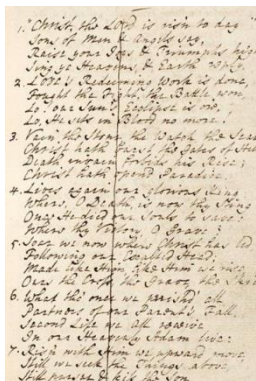 1. "Christ, the LORD is ris'n to day"
Sons of Men & Angels say,
Raise your Joys & Triumphs high
Sing ye Heavens, & Earth reply.
2. Love's Redeeming Work is done,
Fought the Fight, the Battle won,
Lo! our Sun's Eclipse is o'er,
Lo, He sets in Blood no more!
3. Vain the Stone, the Watch, the Seal
Christ hath burst the Gates of Hell
Death in vain forbids his Rise;
Christ hath open'd Paradise.
4. Lives again our glorious King
Where, O Death, is now thy Sting
Once He died our Souls to save;
Where thy Victory, O Grave?
5. Soar we now where Christ has led
Following our Exalted Head;
Made like Him, like Him we rise,
Ours the Cross, the Grave, the Skies
6. What tho' once we perish'd all
Partners of our Parent's Fall,
Second Life we all receive
In our Heavenly Adam live:
7. Ris'n with Him we upward move,
Still we seek the Things above,
Still pursue & kiss the Son